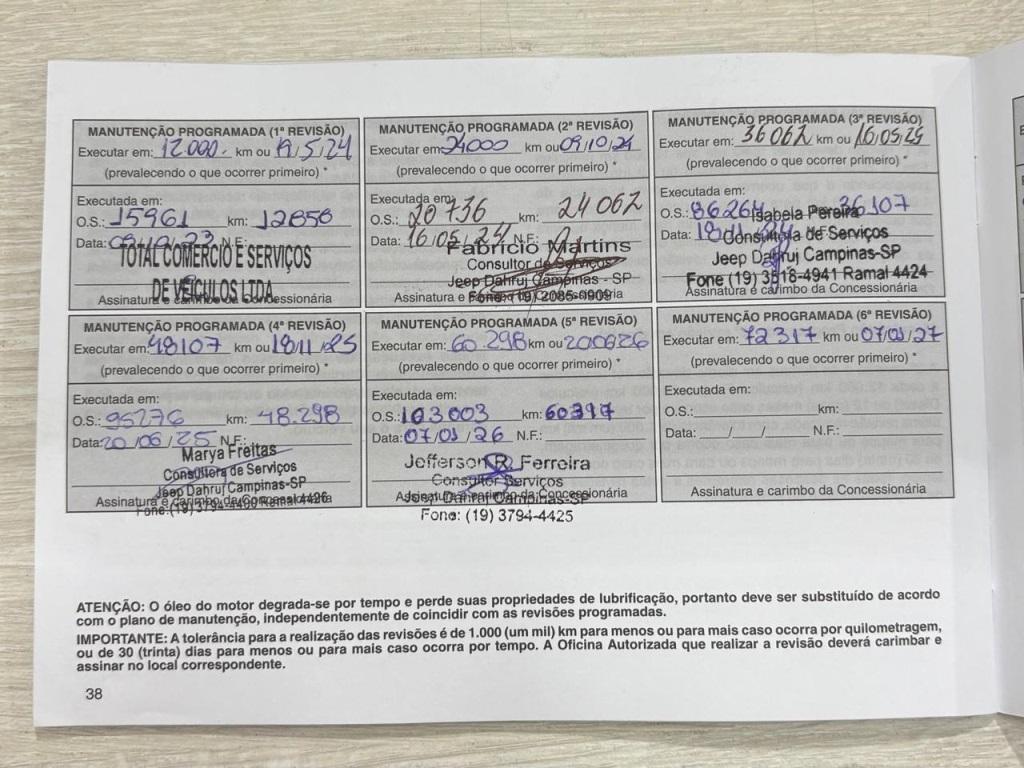 MANUTENÇÃO PROGRAMADA (1ª REVISÃO)
Executar em: 12.000 km ou 19/5/24
(prevalecendo o que ocorrer primeiro) *
Executada em:
O.S.: 15961 km: 12856
Data: 09/10/23 N.F.:
TOTAL COMERCIO E SERVIÇOS
DE VEÍCULOS LTDA
Assinatura e carimbo da Concessionária
MANUTENÇÃO PROGRAMADA (2ª REVISÃO)
Executar em: 24000 km ou 09/10/24
(prevalecendo o que ocorrer primeiro) *
Executada em:
O.S.: 20736 km: 24062
Data: 16/05/24 N.F.:
Fabricio Martins
Consultor de Serviços
Jeep Dahruj Campinas - SP
Fone: (19) 2085-0909
Assinatura e carimbo da Concessionária
MANUTENÇÃO PROGRAMADA (3ª REVISÃO)
Executar em: 36062 km ou 16/05/25
(prevalecendo o que ocorrer primeiro) *
Executada em:
O.S.: 86264 km: 36107
Data: 18/11/24 N.F.:
Isabela Pereira
Consultora de Serviços
Jeep Dahruj Campinas-SP
Fone (19) 3518-4941 Ramal 4424
Assinatura e carimbo da Concessionária
MANUTENÇÃO PROGRAMADA (4ª REVISÃO)
Executar em: 48107 km ou 18/11/25
(prevalecendo o que ocorrer primeiro) *
Executada em:
O.S.: 95276 km: 48.298
Data: 20/06/25 N.F.:
Marya Freitas
Consultora de Serviços
Jeep Dahruj Campinas-SP
Assinatura e carimbo da Concessionária
MANUTENÇÃO PROGRAMADA (5ª REVISÃO)
Executar em: 60.298 km ou 200626
(prevalecendo o que ocorrer primeiro) *
Executada em:
O.S.: 103003 km: 60317
Data: 07/01/26 N.F.:
Jefferson R. Ferreira
Consultor Serviços
Jeep Dahruj Campinas-SP
Assinatura e carimbo da Concessionária
Fone: (19) 3794-4425
MANUTENÇÃO PROGRAMADA (6ª REVISÃO)
Executar em: 72317 km ou 07/01/27
(prevalecendo o que ocorrer primeiro) *
Executada em:
O.S.: km:
Data: / / N.F.:
Assinatura e carimbo da Concessionária
ATENÇÃO: O óleo do motor degrada-se por tempo e perde suas propriedades de lubrificação, portanto deve ser substituído de acordo
com o plano de manutenção, independentemente de coincidir com as revisões programadas.
IMPORTANTE: A tolerância para a realização das revisões é de 1.000 (um mil) km para menos ou para mais caso ocorra por quilometragem,
ou de 30 (trinta) dias para menos ou para mais caso ocorra por tempo. A Oficina Autorizada que realizar a revisão deverá carimbar e
assinar no local correspondente.
38